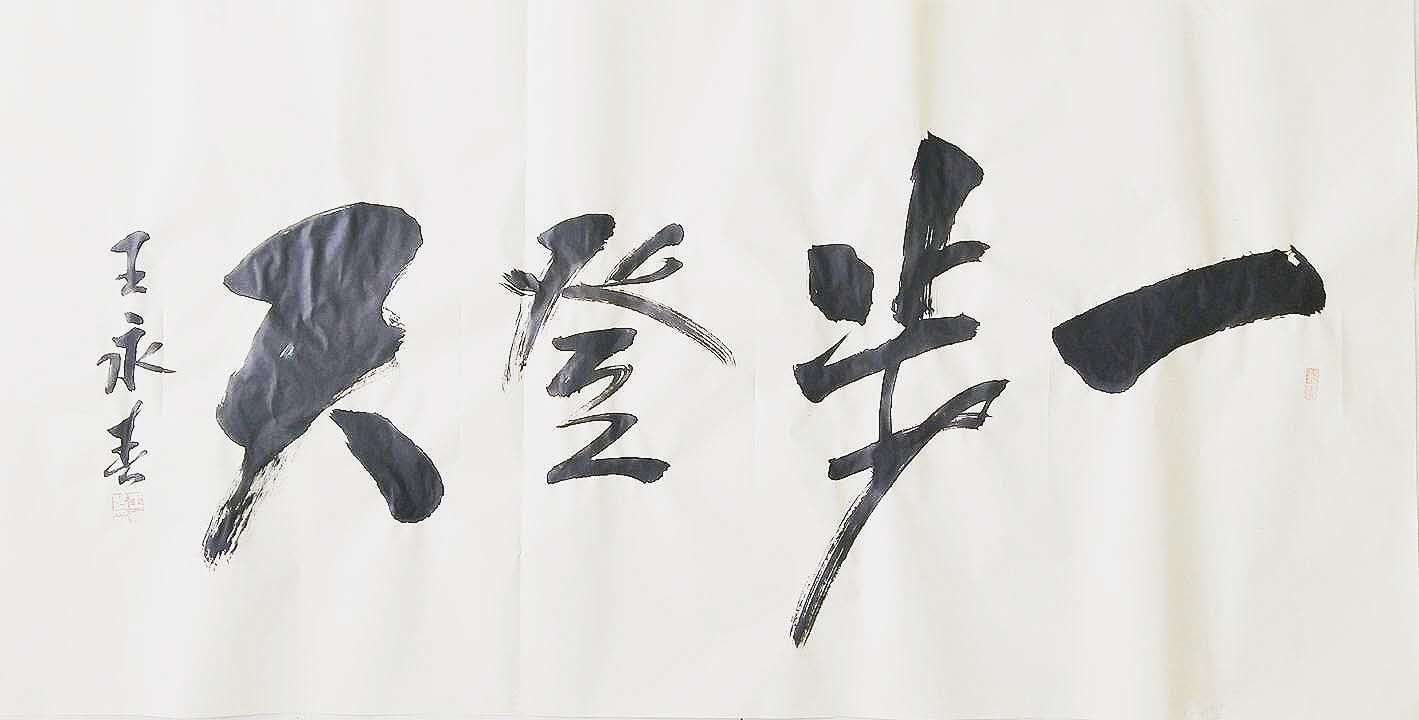 一步登天
王永春